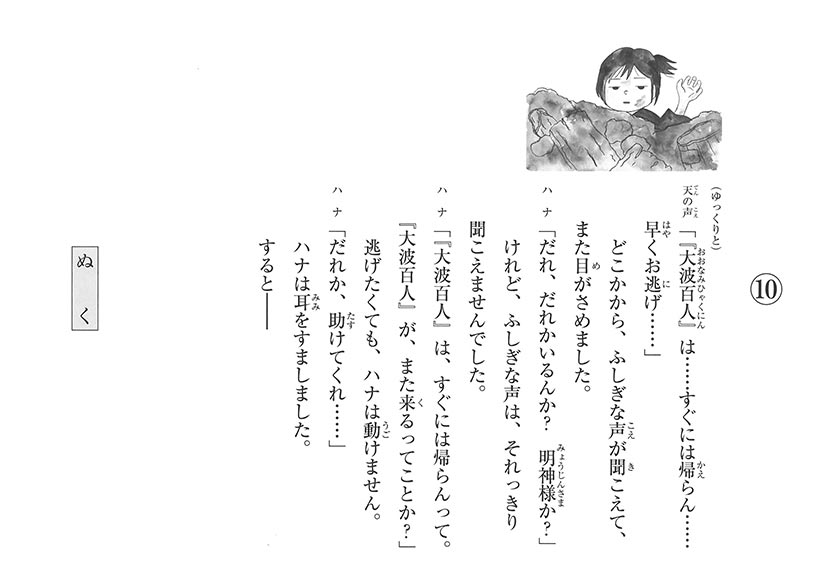 ⑩
(ゆっくりと)
天の声「『大波百人』は……すぐには帰らん……
早くお逃げ……」
どこかから、ふしぎな声が聞こえて、
また目がさめました。
ハナ「だれ、だれかいるんか? 明神様か?」
けれど、ふしぎな声は、それっきり
聞こえませんでした。
ハナ「『大波百人』は、すぐには帰らんって。
『大波百人』が、また来るってことか?」
逃げたくても、ハナは動けません。
ハナ「だれか、助けてくれ……」
ハナは耳をすましました。
すると——
ぬく